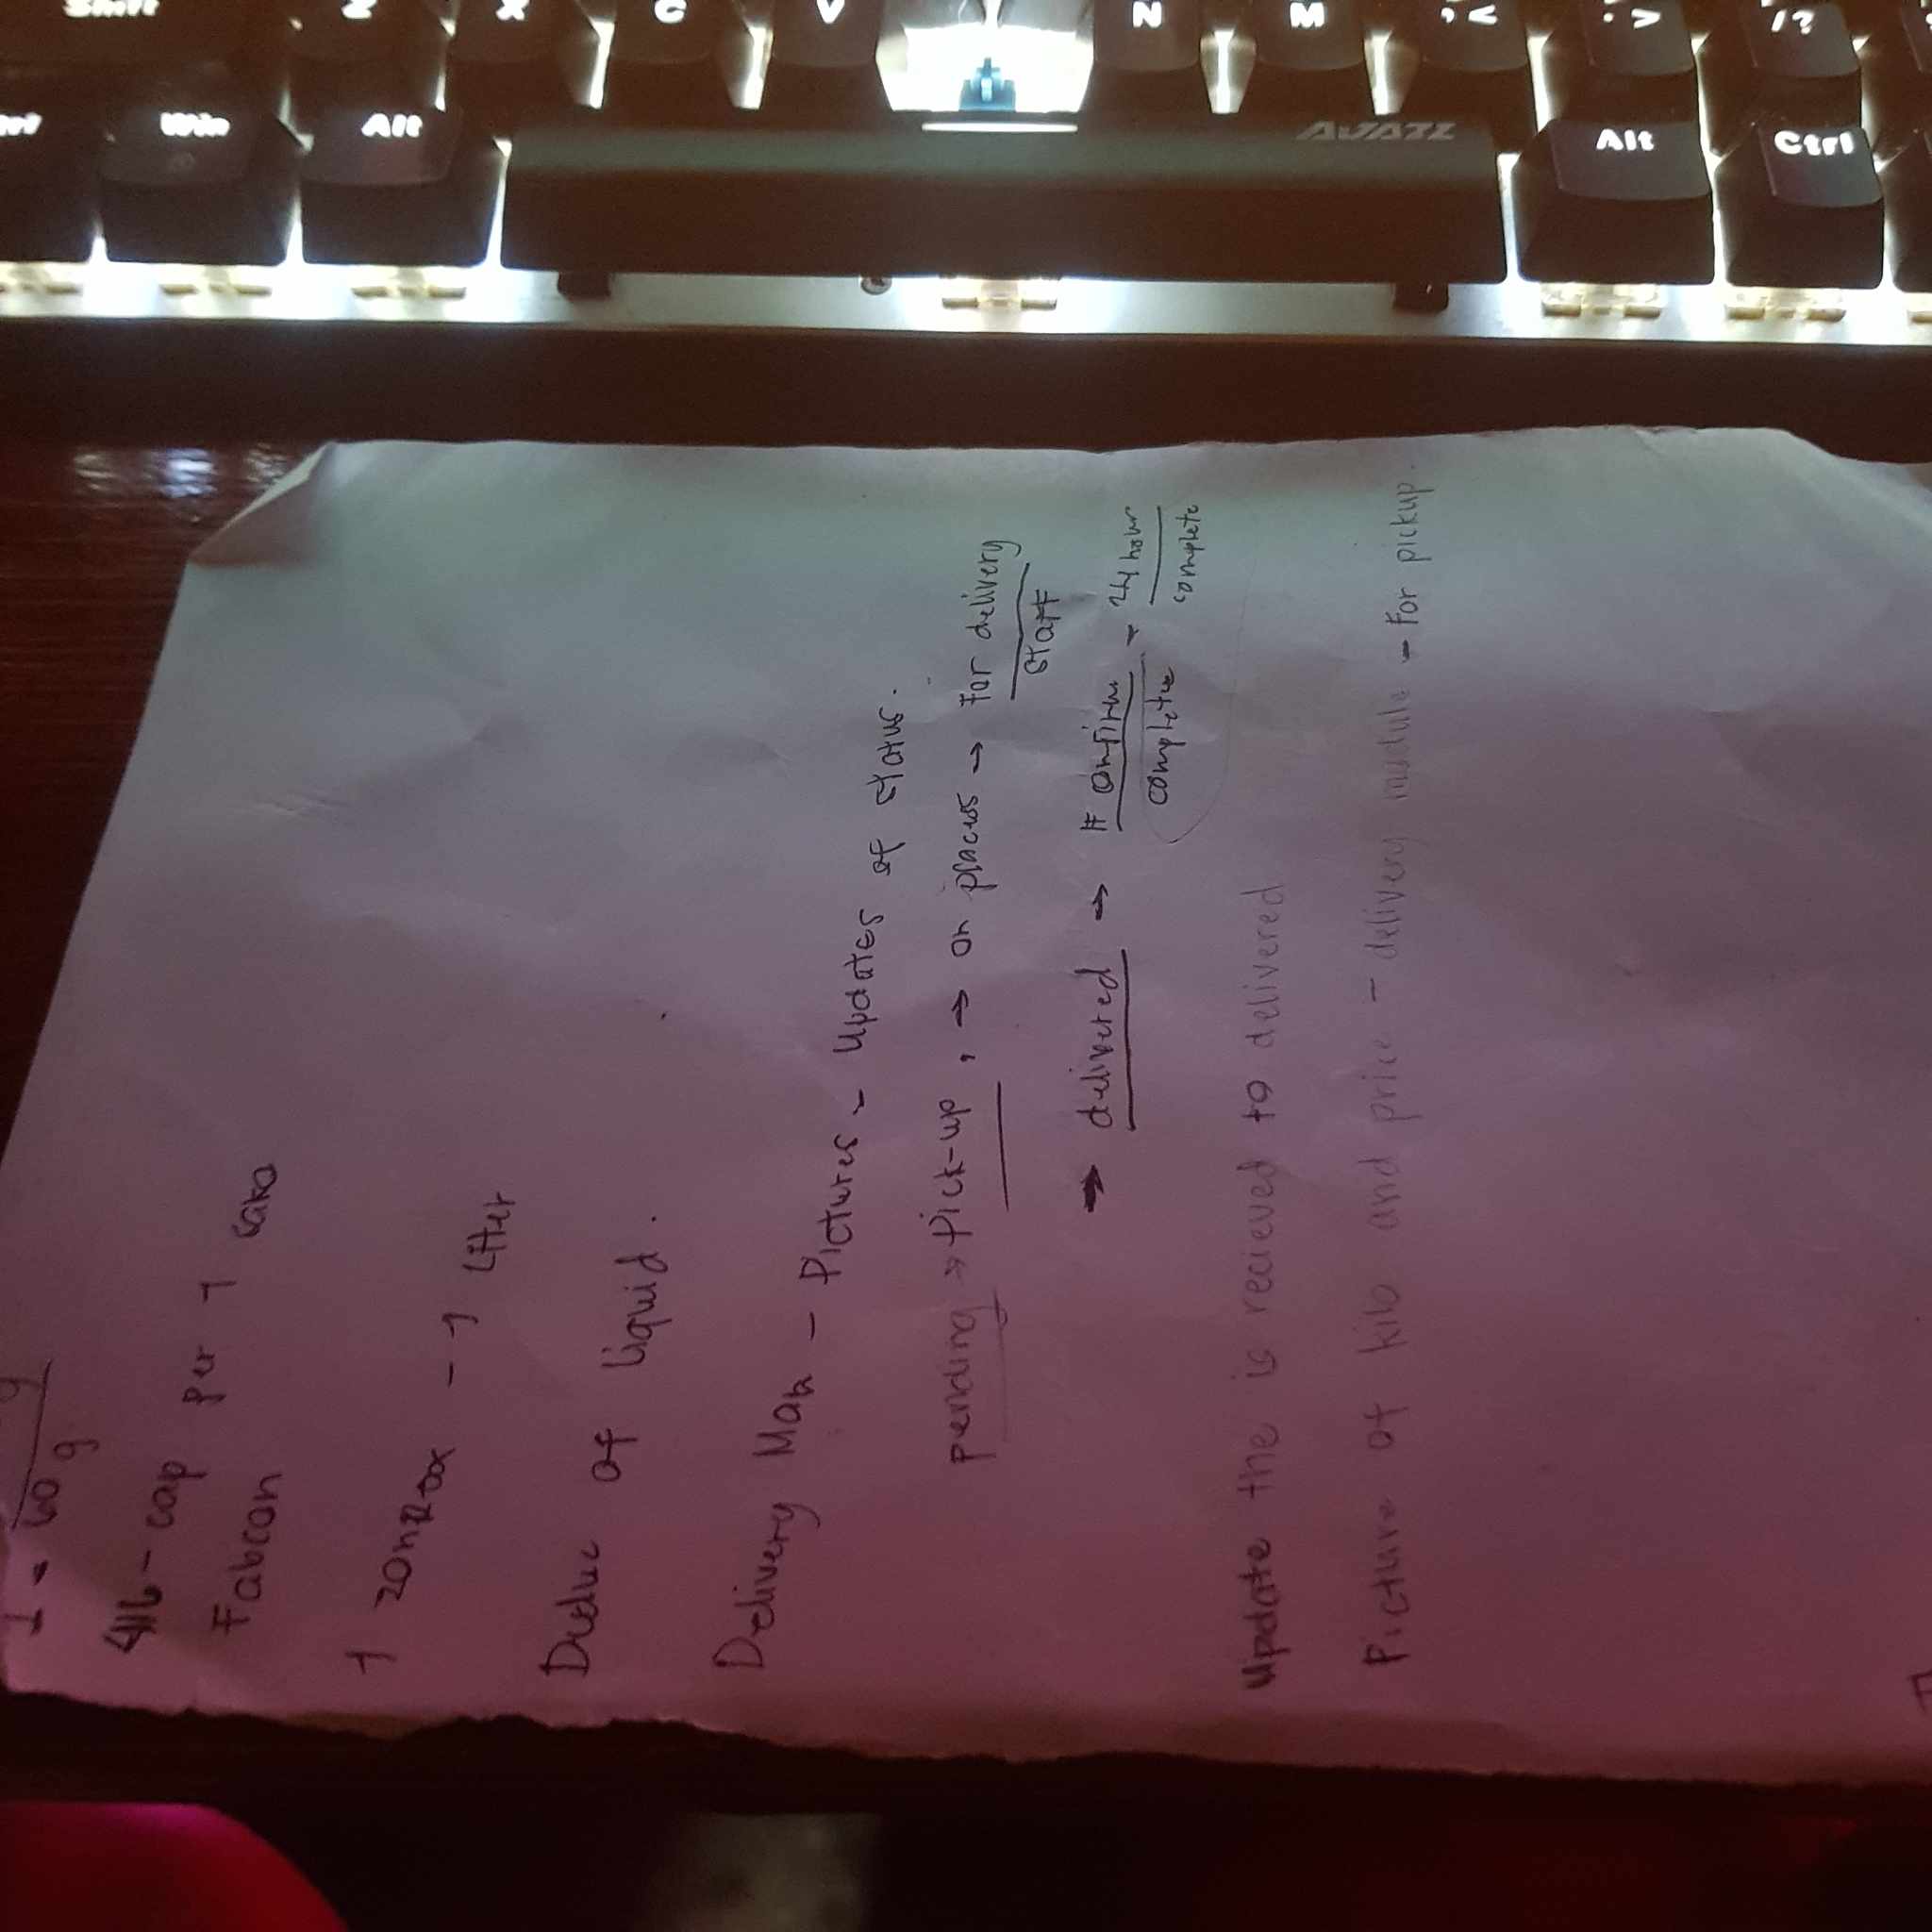 Shift Z X C V N M , < . > / ?
Win Alt AJAZZ Alt Ctrl
1 = 60 g
cap per 1 sako
Fabcon
1 zonrox - 1 Liter
Deduc of liquid.
Delivery Man - Pictures - Updates of status.
pending → Pick-up, → on process → For delivery
staff
→ delivered → If confirm - 24 hour
complete complete
Update the is recieved to delivered
Picture of kilo and price - delivery module - For pickup.